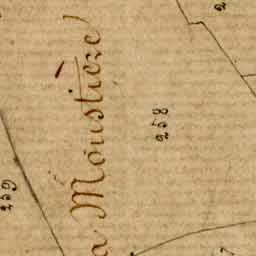 a Moustière
258
259